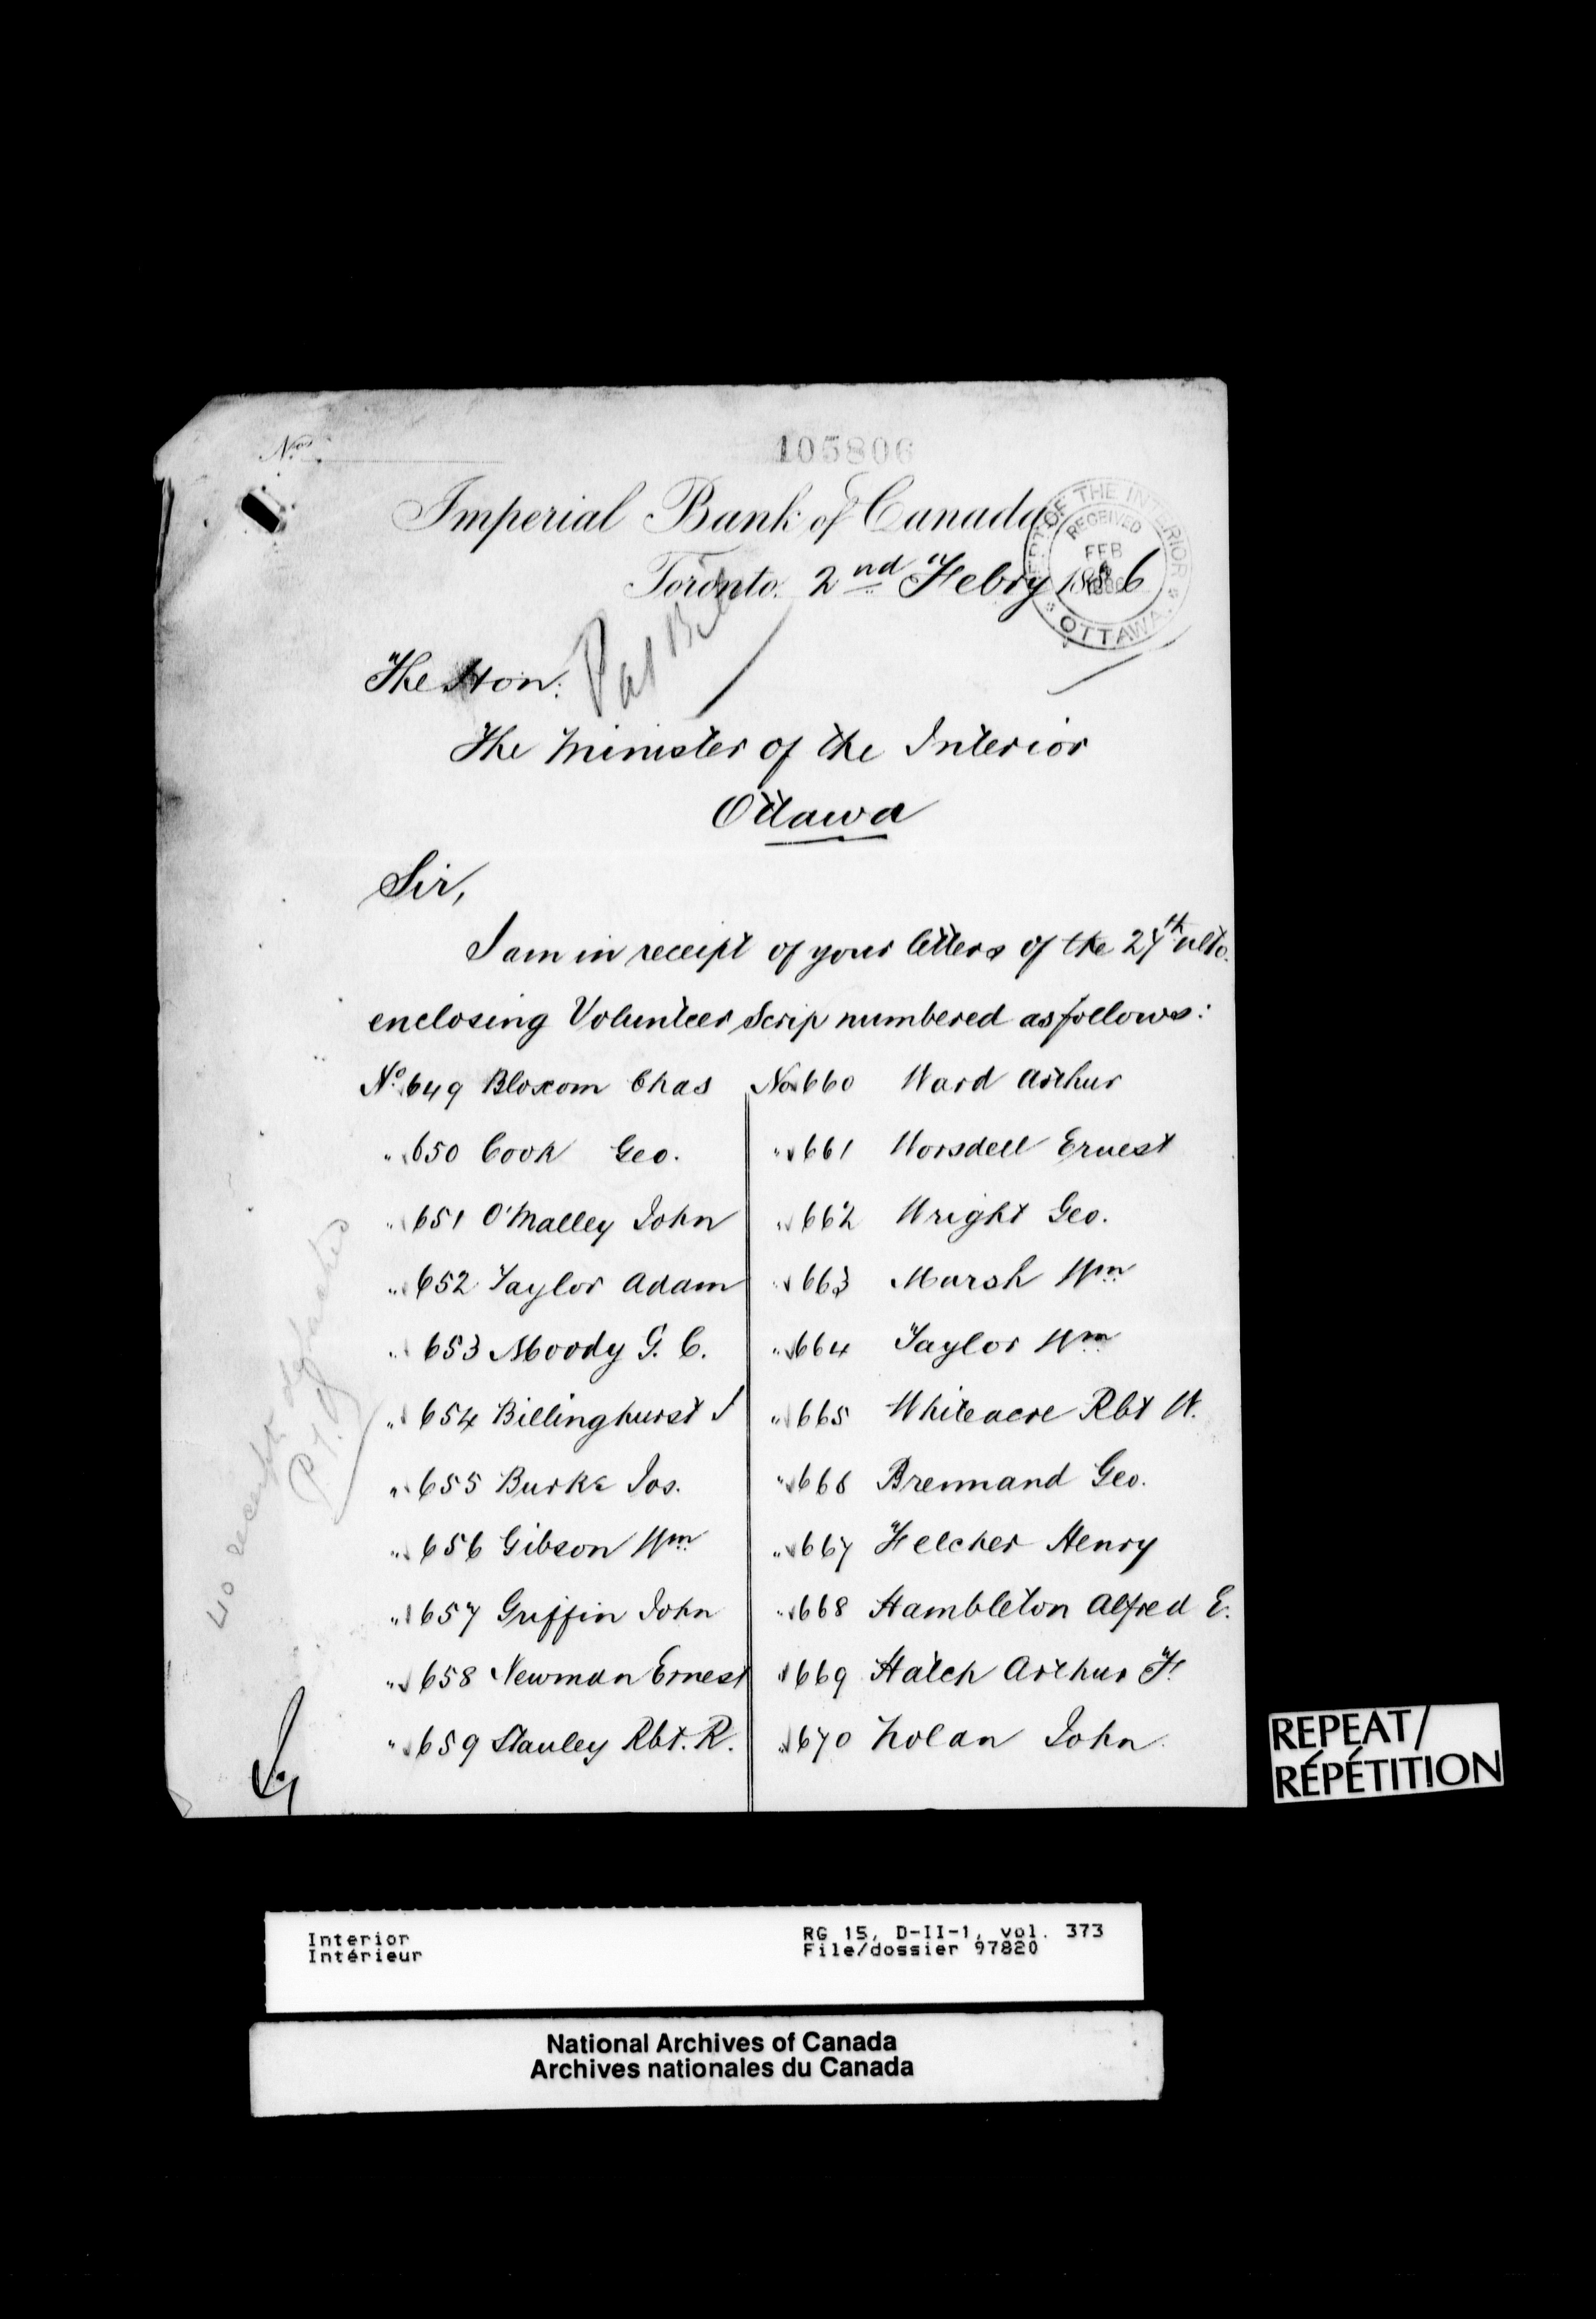 No.
105806
Imperial Bank of Canada
DEPT. OF THE INTERIOR
RECEIVED
FEB
OTTAWA
Toronto. 2nd Febry 1886
The Hon:
The Minister of the Interior
Ottawa
Sir,
I am in receipt of your letters of the 27th ulto.
enclosing Volunteer Scrip numbered as follows:
No. 649 Bloxom Chas No. 660 Ward Arthur
" 650 Cook Geo. " 661 Worsdell Ernest
" 651 O'Malley John " 662 Wright Geo.
" 652 Taylor Adam " 663 Marsh Wm
" 653 Moody G. C. " 664 Taylor Wm
" 654 Billinghurst J " 665 Whiteacre Rbt W.
" 655 Burke Jos. " 666 Brennand Geo.
" 656 Gibson Wm " 667 Felcher Henry
" 657 Griffin John " 668 Hambleton Alfred E.
" 658 Newman Ernest " 669 Hatch Arthur F.
" 659 Stanley Rbt. R. " 670 Nolan John
REPEAT/
RÉPÉTITION
Interior RG 15, D-II-1, vol. 373
Intérieur File/dossier 97820
National Archives of Canada
Archives nationales du Canada